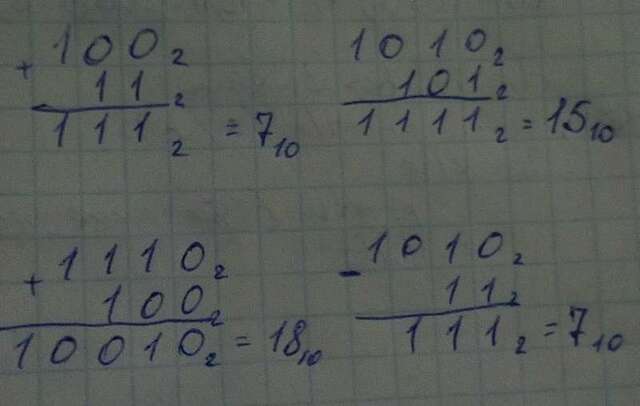 + 100₂
11₂
111₂ = 7₁₀
1010₂
101₂
1111₂ = 15₁₀
+ 1110₂
100₂
10010₂ = 18₁₀
- 1010₂
11₂
111₂ = 7₁₀